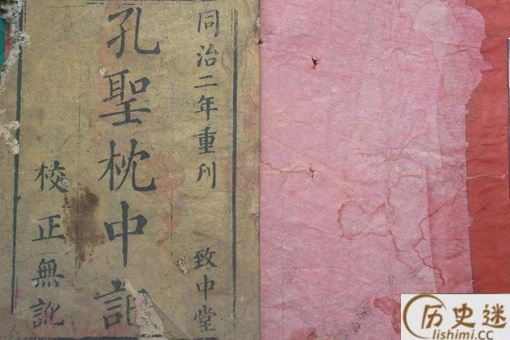 同治二年重刊
致中堂
孔聖枕中記
校正無訛
历史迷
lishimi.cc